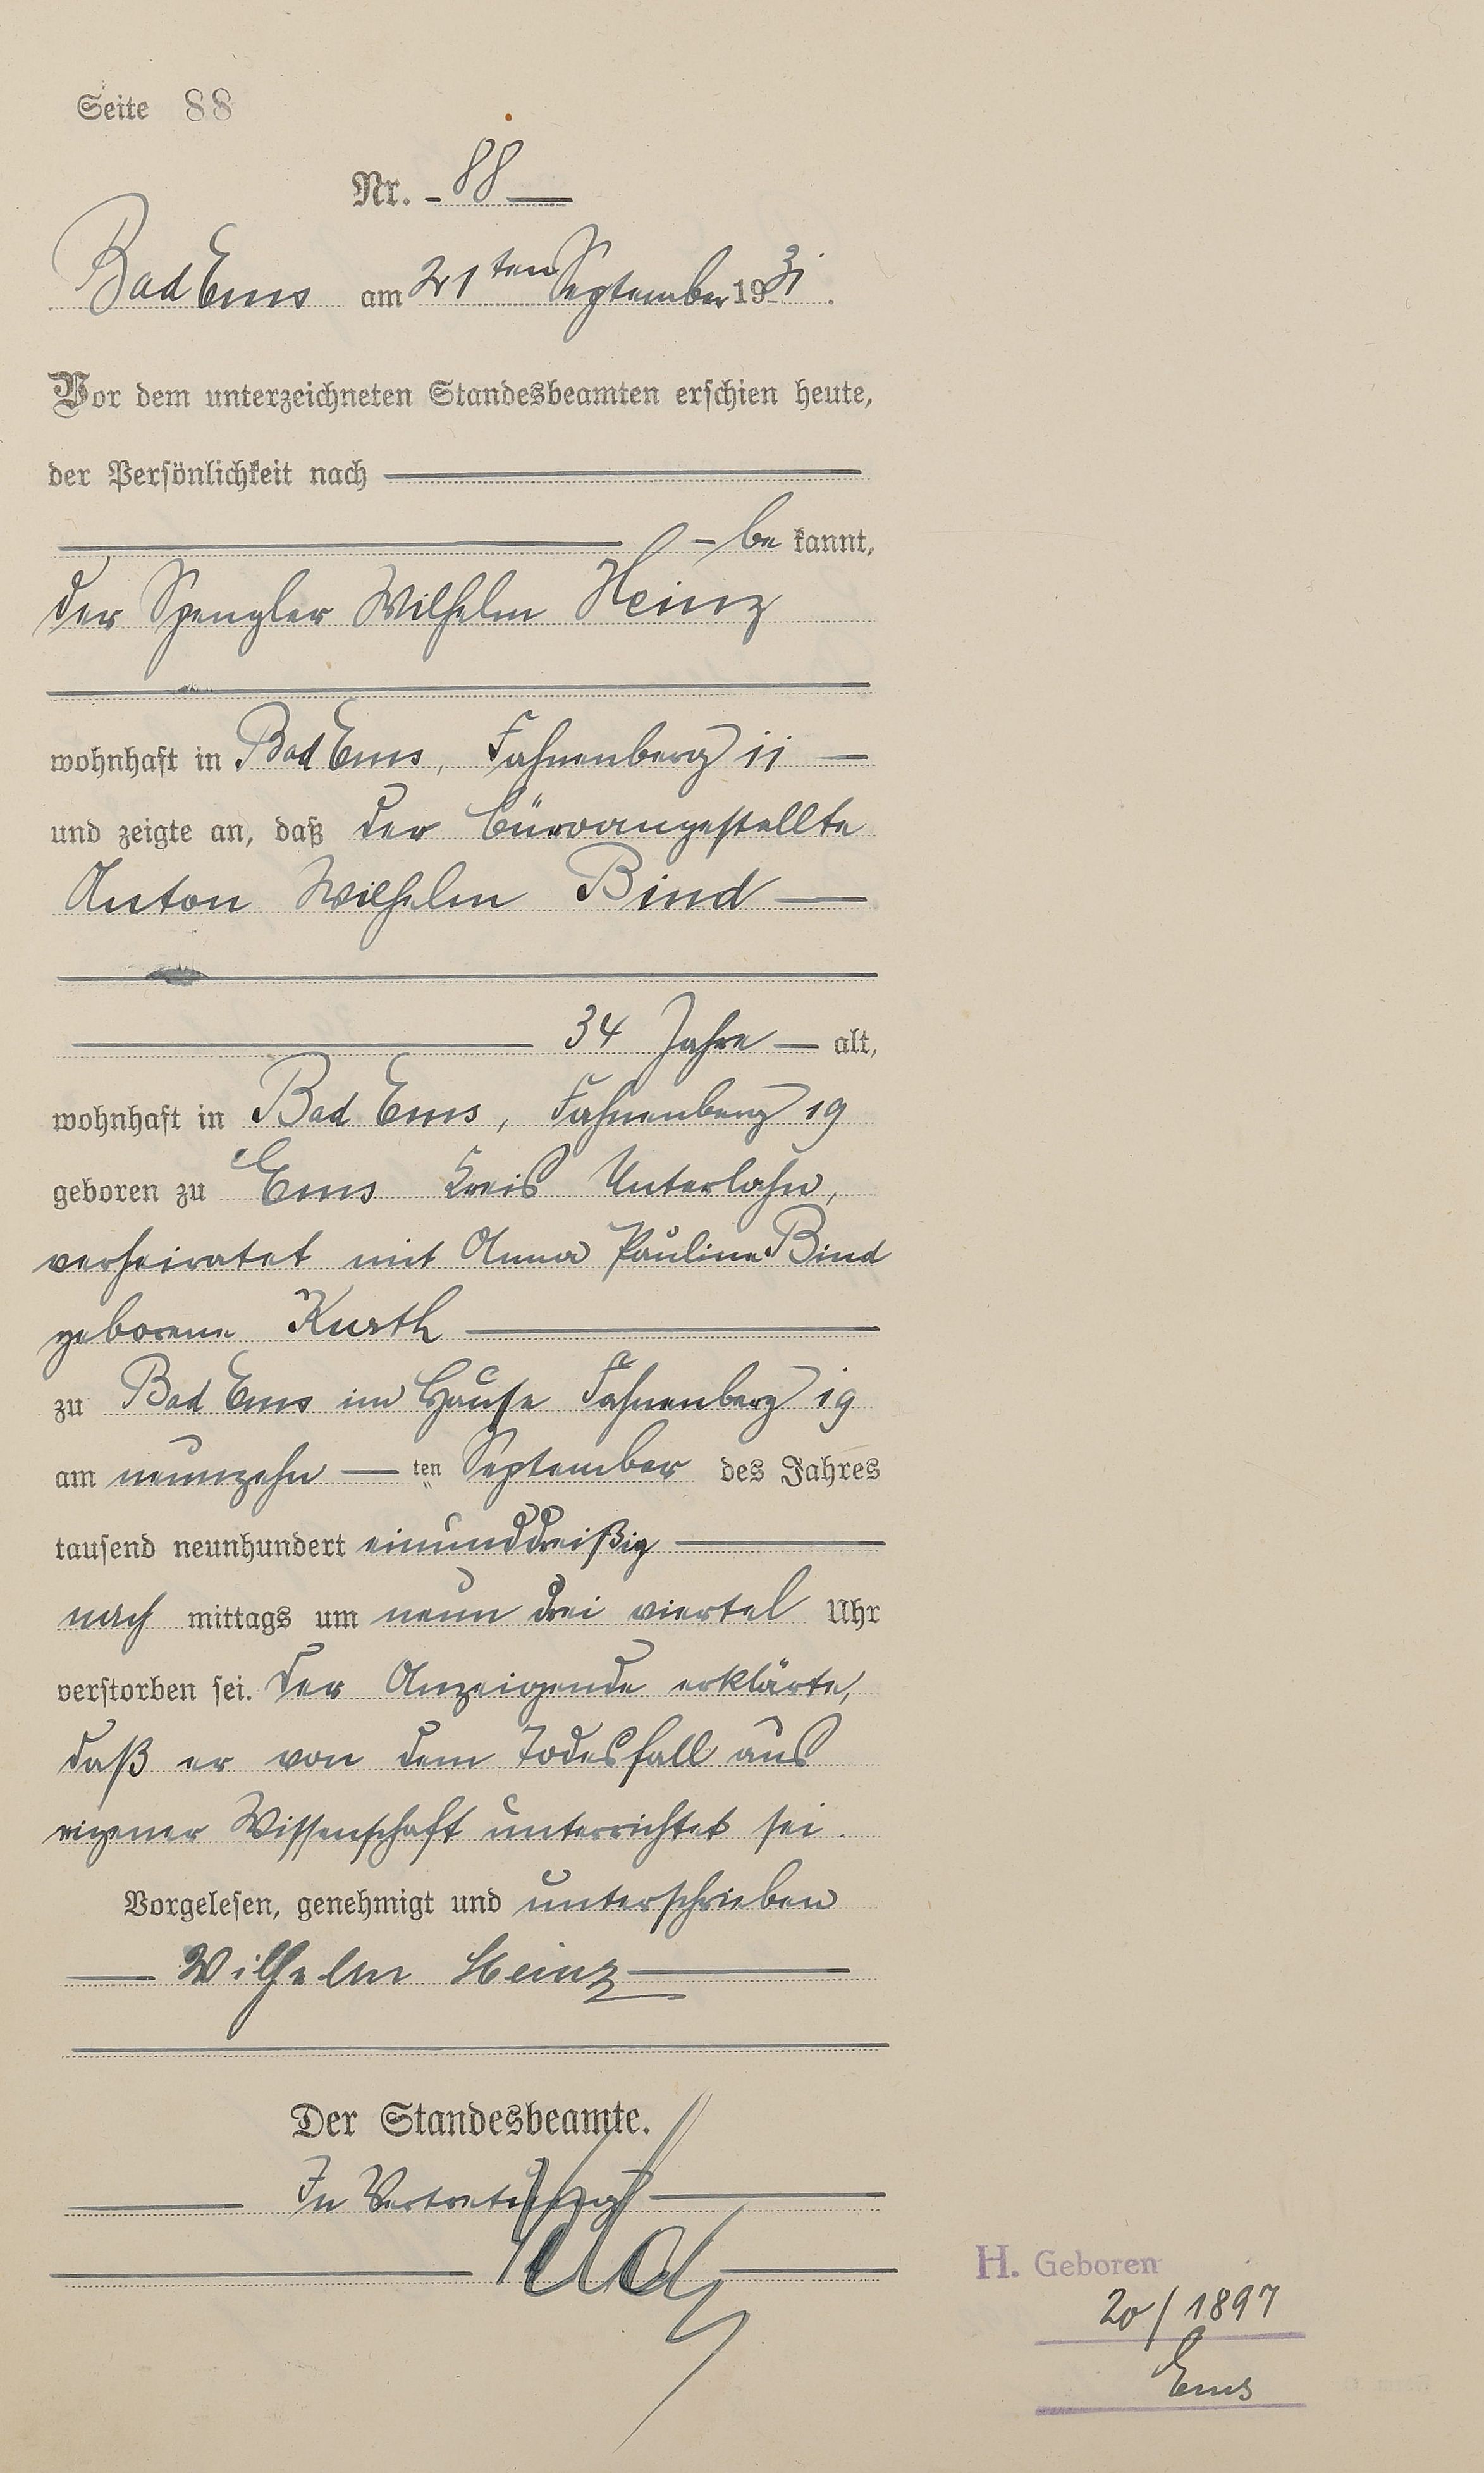 Seite 88
Nr. 88
Bad Ems am 21ten September 1931.
Vor dem unterzeichneten Standesbeamten erschien heute,
der Persönlichkeit nach
be kannt,
der Spengler Wilhelm Heinz
wohnhaft in Bad Ems, Fahnenberg 11
und zeigte an, daß der Büroangestellte
Anton Wilhelm Bind
34 Jahre alt,
wohnhaft in Bad Ems, Fahnenberg 19
geboren zu Ems Kreis Unterlahn,
verheiratet mit Anna Pauline Bind
geborene Kurth
zu Bad Ems im Hause Fahnenberg 19
am neunzehn ten September des Jahres
tausend neunhundert einunddreißig
nach mittags um neun drei viertel Uhr
verstorben sei. Der Anzeigende erklärte,
daß er von dem Todesfall aus
eigener Wissenschaft unterrichtet sei.
Vorgelesen, genehmigt und unterschrieben
Wilhelm Heinz
Der Standesbeamte.
In Vertretung
H. Geboren
20/1897
Ems